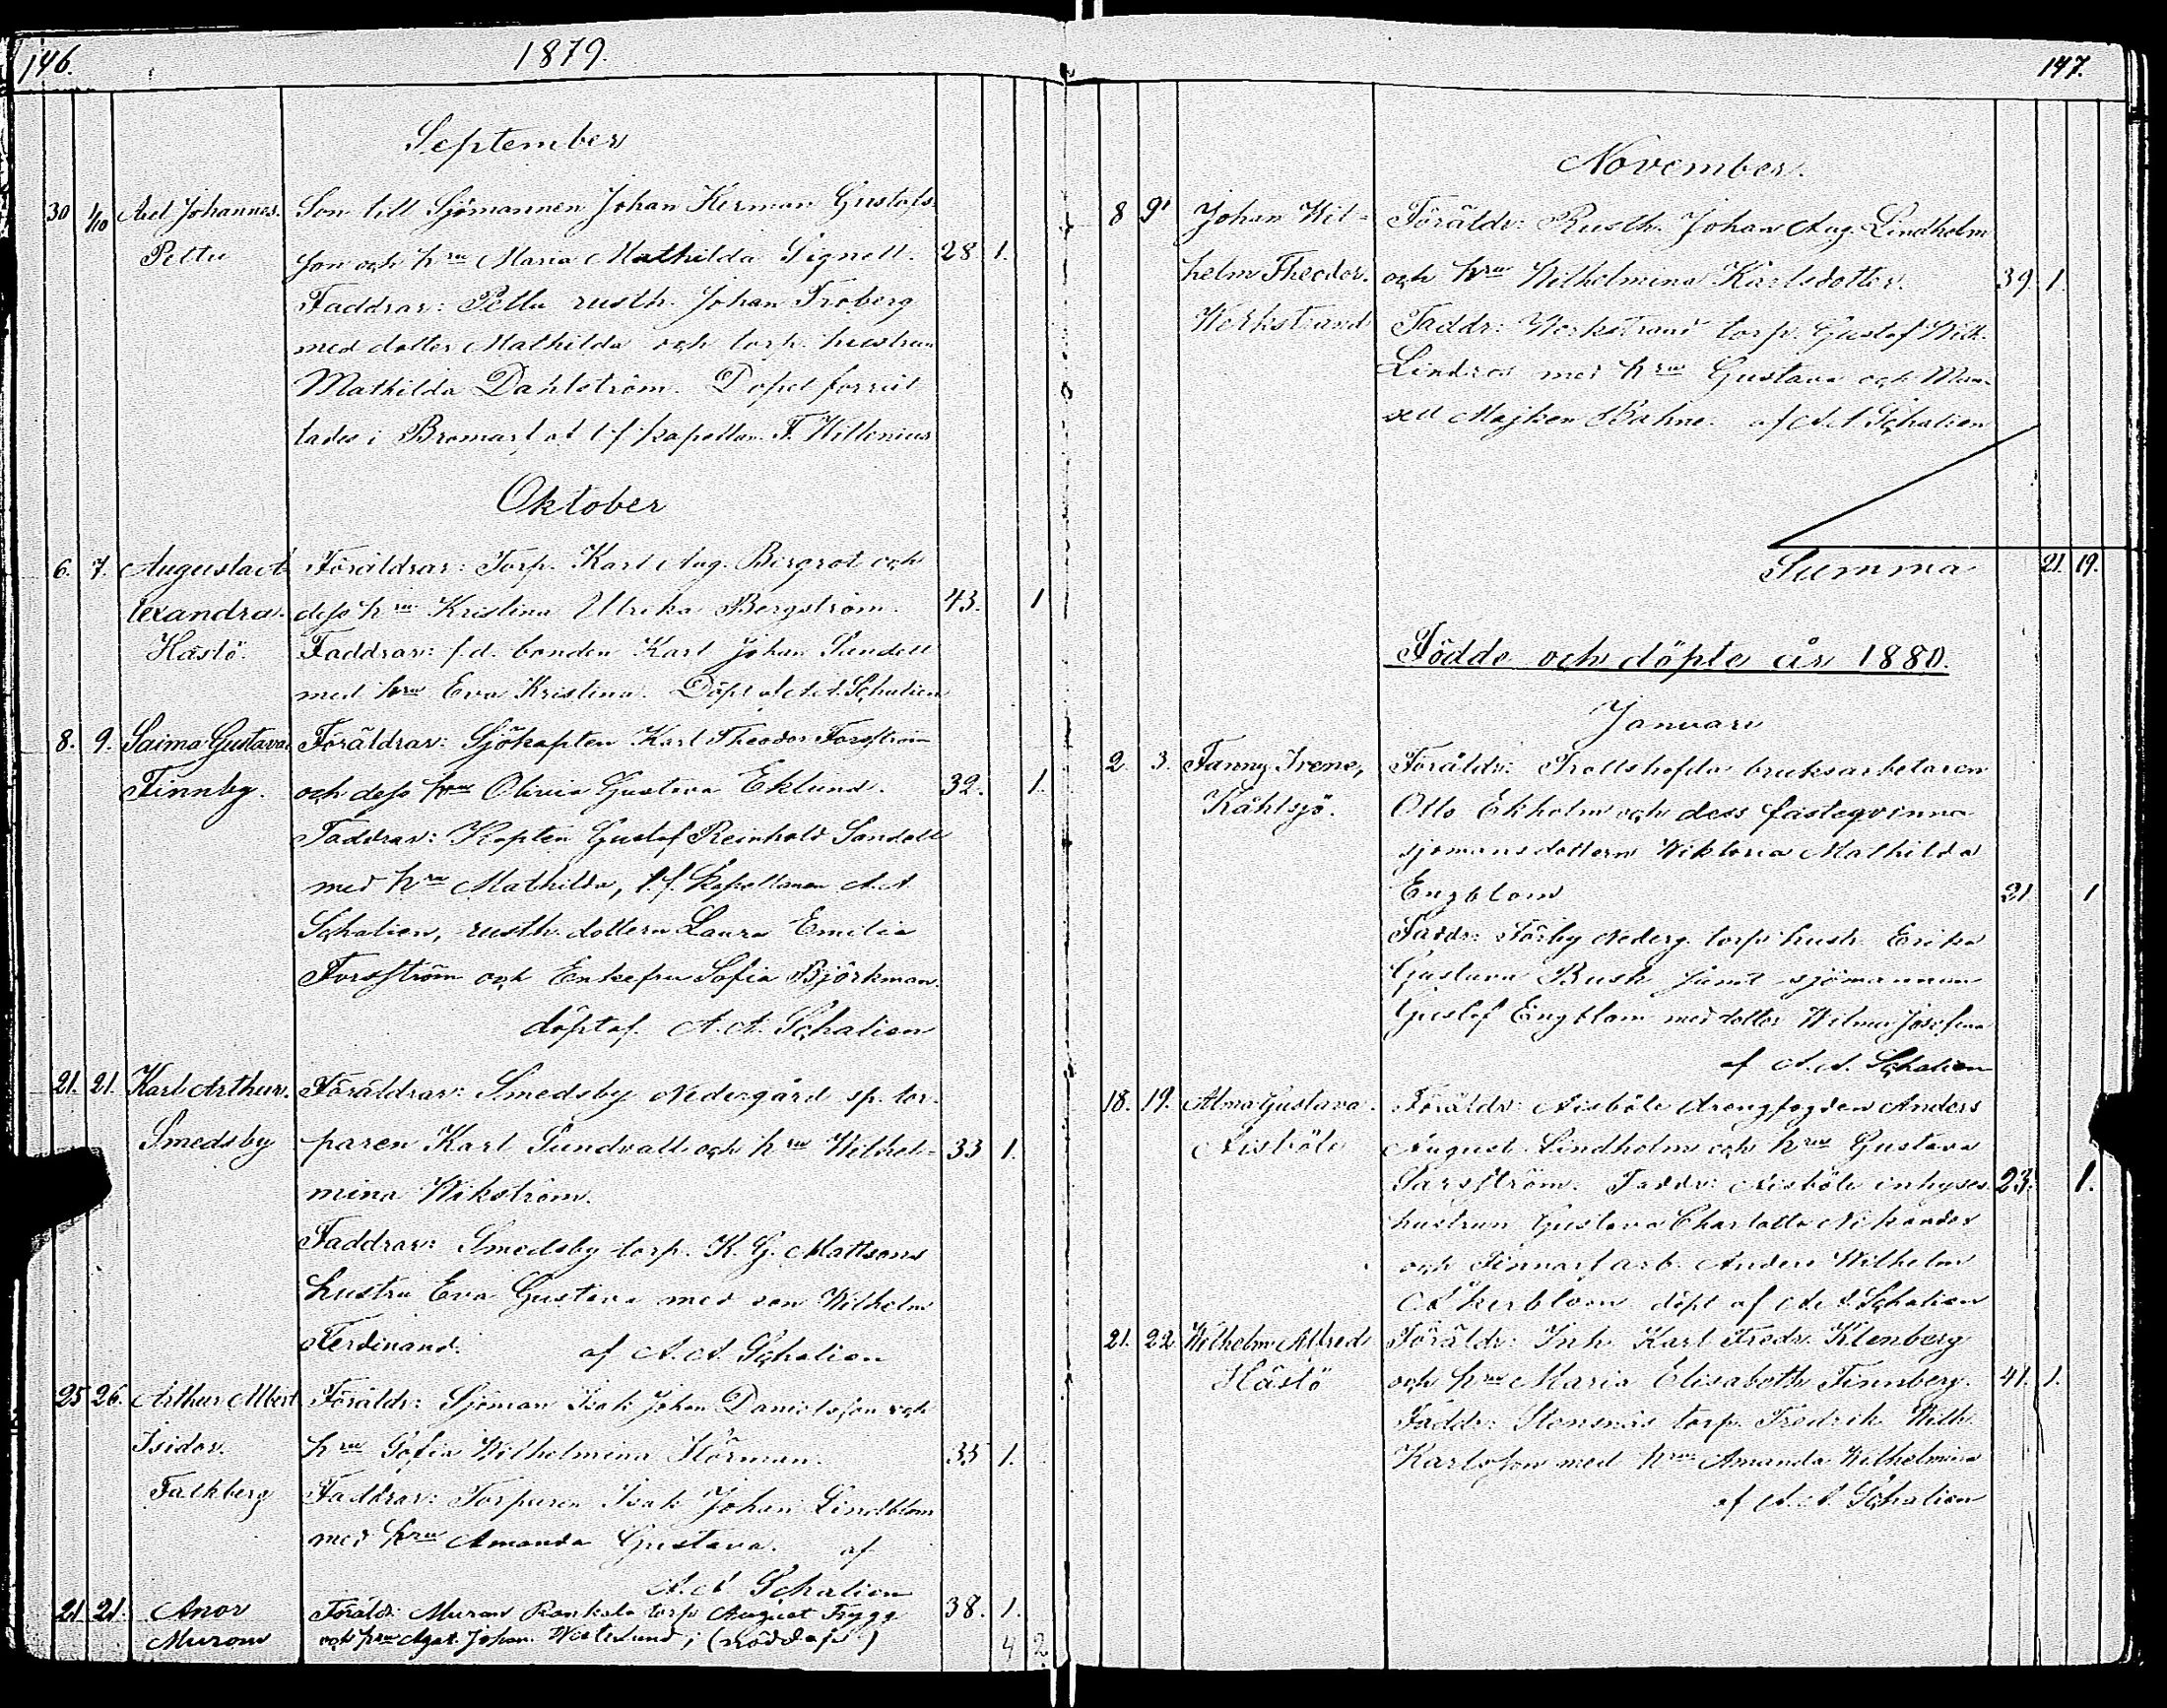 146.
1879.
September
30 1/10 Axel Johannes. Son till Sjömannen Johan Herman Gustafs-
Pettu son och hru Maria Mathilda Signell. 28 1.
Faddrar: Pettu rusth. Johan Froberg
med dotter Mathilda och torp. hustrun
Mathilda Dahlström. Dopet förrät-
tades i Bromarf af t.f. kapellan F. Willenius
Oktober
6. 7. Augusta A- Föräldrar: Torp. Karl Aug. Bergrot och
lexandra. dess hru Kristina Ulrika Bergström. 43. 1
Hästö. Faddrar: f.d. bonden Karl Johan Sundell
med hru Eva Kristina. Döpt af A.A. Schalien
8. 9. Saima Gustava. Föräldrar: Sjökapten Karl Theodor Forsström
Finnby. och dess hru Olivia Gustava Eklund. 32. 1.
Faddrar: Kapten Gustaf Reinhold Sandell
med hru Mathilda, t.f. Kapellanen A.A.
Schalien, rusth. dottern Laura Emilia
Forsström och Enkefru Sofia Björkman.
döpt af A.A. Schalien
21. 21. Karl Arthur. Föräldrar: Smedsby Nedergård sp. tor-
Smedsby paren Karl Sundvall och hru Wilhel- 33 1.
mina Wikström.
Faddrar: Smedsby torp. K.G. Mattsons
hustru Eva Gustava med son Wilhelm
Ferdinand. af A.A. Schalien
25 26. Arthur Albert Föräldr: Sjöman Isak Johan Danielsson och
Isidor. hru Sofia Wilhelmina Hörman. 35 1.
Falkberg Faddrar: Torparen Isak Johan Lindblom
med hru Amanda Gustava. af
A.A. Schalien
21 21. Anor Föräldr: Murom Rankala torp August Trygg 38. 1.
Murom och hru Agat. Johan. Westerlund; (nöddöpt) 4 2
147.
November.
8 9. Johan Wil- Föräldr: Rusth. Johan Aug. Lindholm
helm Theodor. och hru Wilhelmina Karlsdotter. 39. 1.
Werkstrand Faddr: Werkstrand torp. Gustaf Wilh.
Lindros med hru Gustava och Mam-
sell Majken Bahne. af A.A. Schalien
Summa 21. 19.
Födde och döpte år 1880.
Januari
2. 3. Fanny Irene, Föräldr: Trollshofda bruksarbetaren
Kählsjö. Otto Ekholm och dess fästeqvinna
sjömansdottern Wiktoria Mathilda
Engblom 21. 1
Faddr: Förby Nederg. torp. hustr. Erika
Gustava Busk jemt sjömannen
Gustaf Engblom med dotter Wilma Josefina
af A.A. Schalien
18. 19. Alma Gustava. Föräldr: Aisböle drengfogden Anders
Aisböle August Lindholm och hru Gustava
Sarsström. Faddr: Aisböle inhyses 23. 1.
hustrun Gustava Charlotta Nikander
och Finnarf arb. Anders Wilhelm
Åkerblom döpt af A.A. Schalien
21. 22. Wilhelm Alfred Föräldr: Inh. Karl Fredr. Klenberg
Hästö och hru Maria Elisabeth Finnberg. 41. 1.
Faddr: Stensnäs torp. Fredrik Wilh.
Karlsson med hru Amanda Wilhelmina
af A.A. Schalien